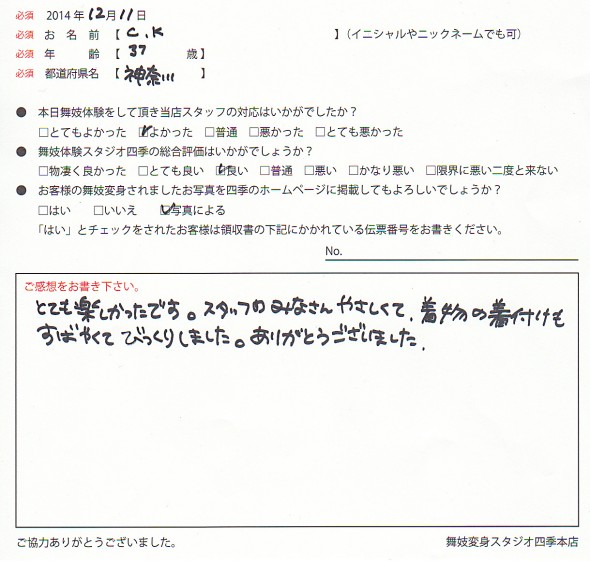 必須 2014年12月11日
必須 お名前 【 C.K 】（イニシャルやニックネームでも可）
必須 年齢 【 37 歳】
必須 都道府県名 【 神奈川 】
● 本日舞妓体験をして頂き当店スタッフの対応はいかがでしたか？
□とてもよかった ☑よかった □普通 □悪かった □とても悪かった
● 舞妓体験スタジオ四季の総合評価はいかがでしょうか？
□物凄く良かった □とても良い ☑良い □普通 □悪い □かなり悪い □限界に悪い二度と来ない
● お客様の舞妓変身されましたお写真を四季のホームページに掲載してもよろしいでしょうか？
□はい □いいえ ☑写真による
「はい」とチェックをされたお客様は領収書の下記にかかれている伝票番号をお書きください。
No.
ご感想をお書き下さい。
とても楽しかったです。スタッフのみなさんやさしくて、着物の着付けも
すばやくてびっくりしました。ありがとうございました.
ご協力ありがとうございました。 舞妓変身スタジオ四季本店